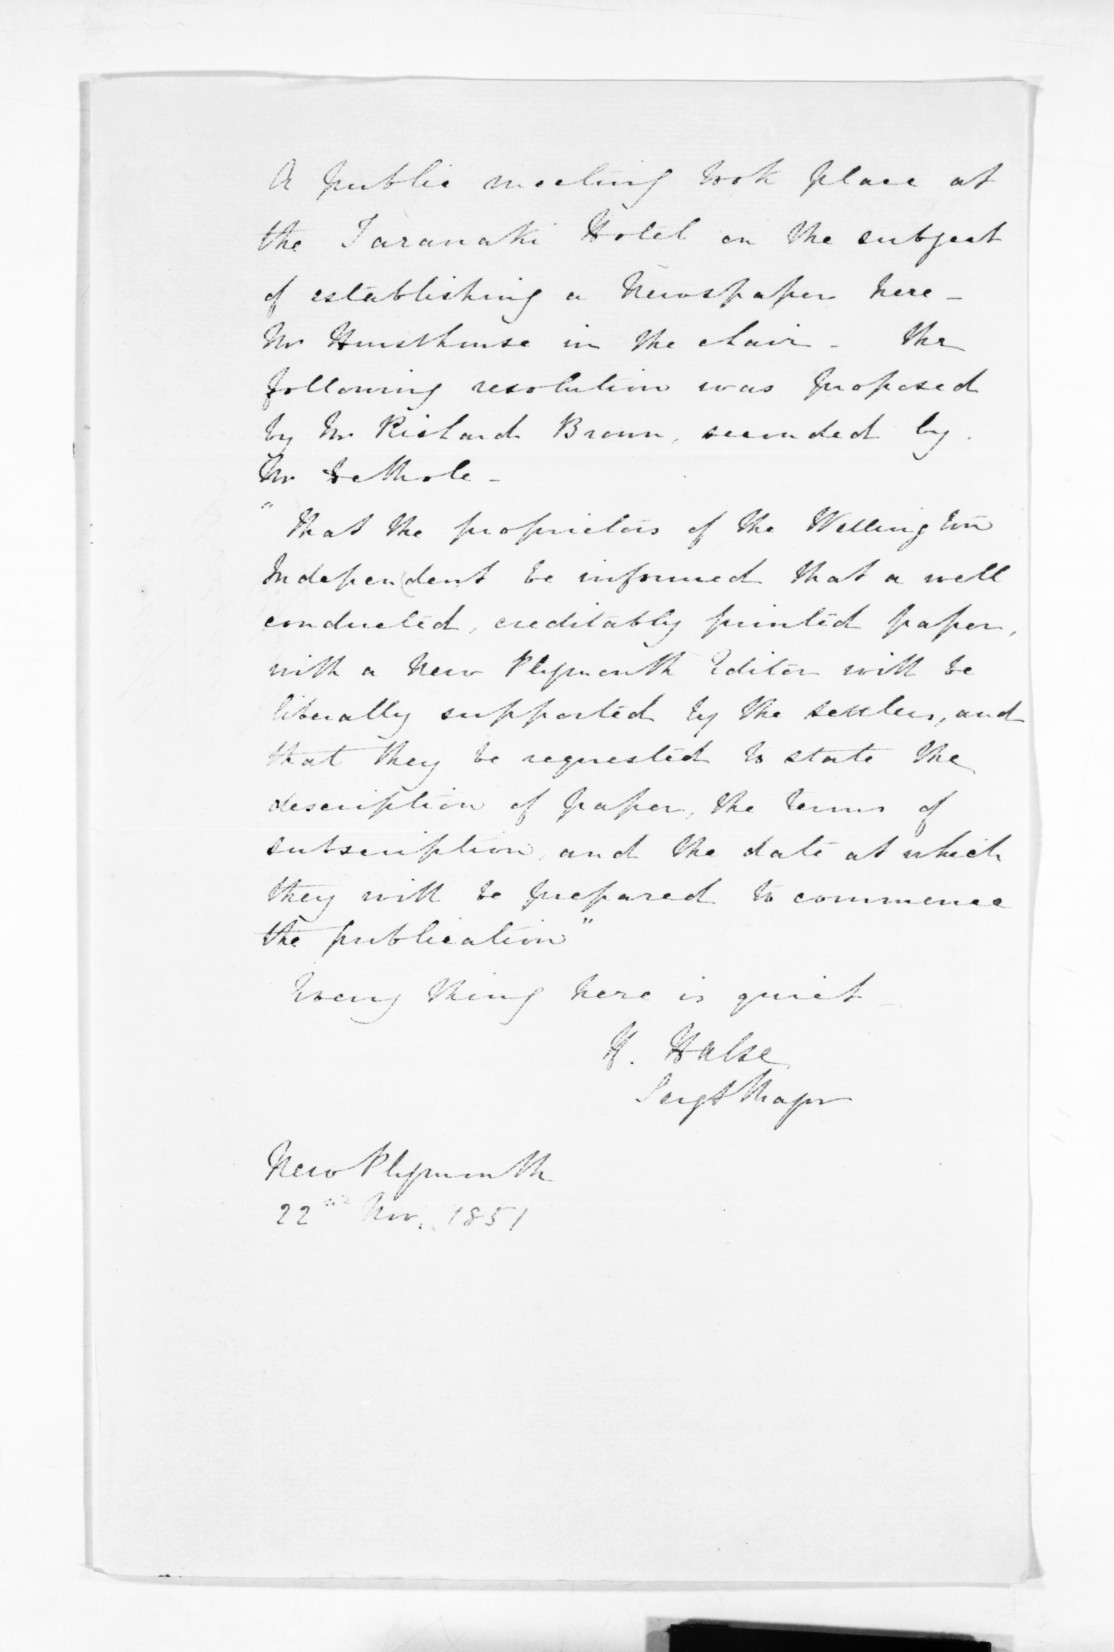 A public meeting took place at
the Taranaki Hotel on the subject
of establishing a Newspaper here -
Mr Hursthouse in the chair - The
following resolution was proposed
by Mr Richard Brown, seconded by
Mr
"That the proprietors of the Wellington
Independent be informed that a well
conducted, creditably printed paper,
with a New Plymouth Editor will be
liberally supported by the settlers, and
that they be requested to state the
description of paper, the terms of
subscription, and the date at which
they will be prepared to commence
the publication"
Every thing here is quiet
H. Halse
Sergt Major
New Plymouth
22nd Nov. 1851